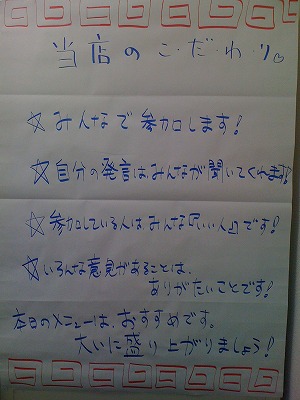 当店のこ・だ・わ・り♡
☆みんなで参加します!
☆自分の発言はみんなが聞いてくれます!
☆参加している人はみんな『いい人』です!
☆いろんな意見があることは、
ありがたいことです!
本日のメニューは、おすすめです。
大いに盛り上がりましょう!